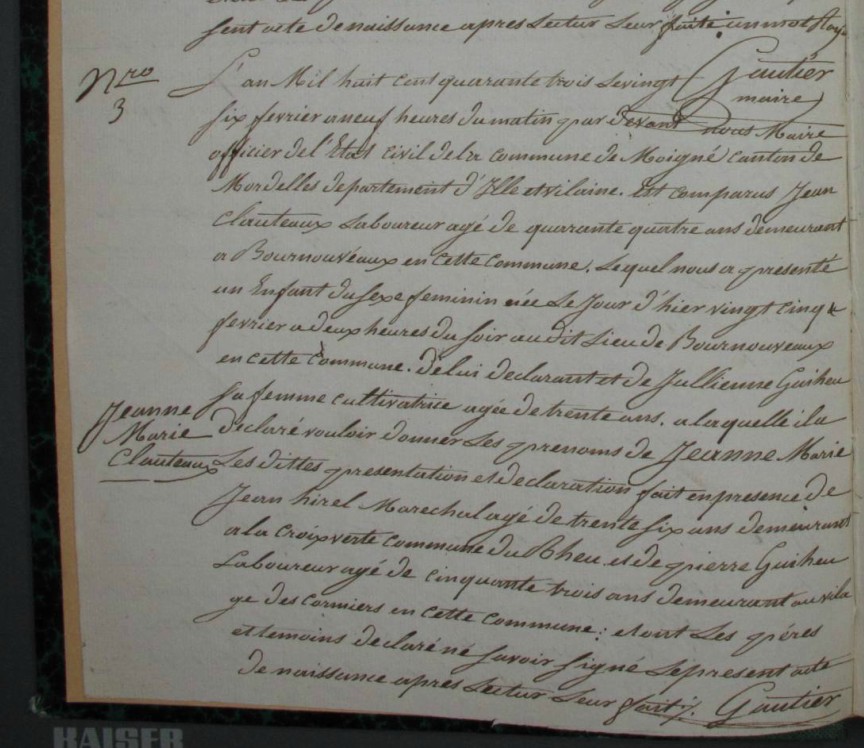 sent acte de naissance apres lectur leur faite un mot
Gautier
maire
Nro
3
L'an Mil huit cent quarante trois le vingt
six fevrier a neuf heures du matin par devant nous Maire
officier de l'Etat civil de la commune de Moigné canton de
Mordelles departement d'Ille et vilaine. Est comparus Jean
Clauteaux Laboureur agé de quarante quatre ans demeurant
a Bournouveaux en cette commune. Lequel nous a presenté
un Enfant du sexe feminin née Le Jour d'hier vingt cinq
fevrier a deux heures du soir audit Lieu de Bournouveaux
en cette commune. de lui declarant et de Jullienne Guiheu
sa femme cultivatrice agée de trente ans. a laquelle il a
Jeanne
Marie
Clauteaux
declaré vouloir donner Les prenoms de Jeanne Marie
Les dittes presentation et declaration fait en presence de
Jean hirel Marechal agé de trente six ans demeurant
a la Croix verte commune du Rheu. et de pierre Guiheu
Laboureur agé de cinquante trois ans demeurant au vila
ge des cormiers en cette commune: et ont Les péres
et temoins declaré ne savoir signé Le present acte
de naissance apres Lectur Leur fait Gautier
KAISER